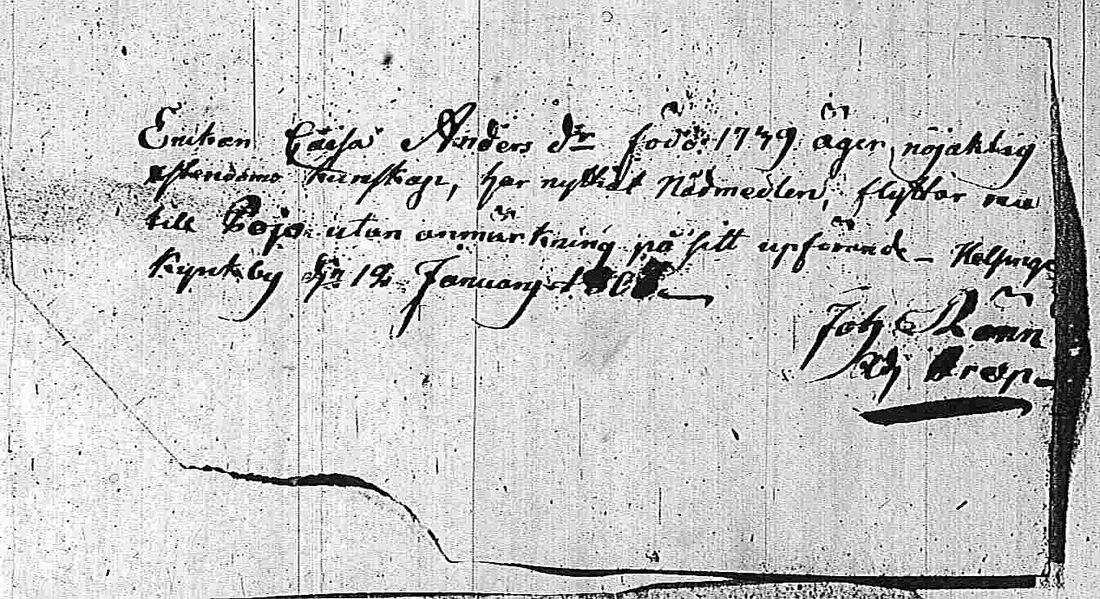 Enckan Caisa Anders dr född 1749 äger nöjaktig
christendoms kunskap, har nyttiat Nådmedlen, flyttar nu
till Pojo utan anmärkning på sitt upförande – Helsinge
Kyrkoby den 12 January
Joh Rönn
Adj